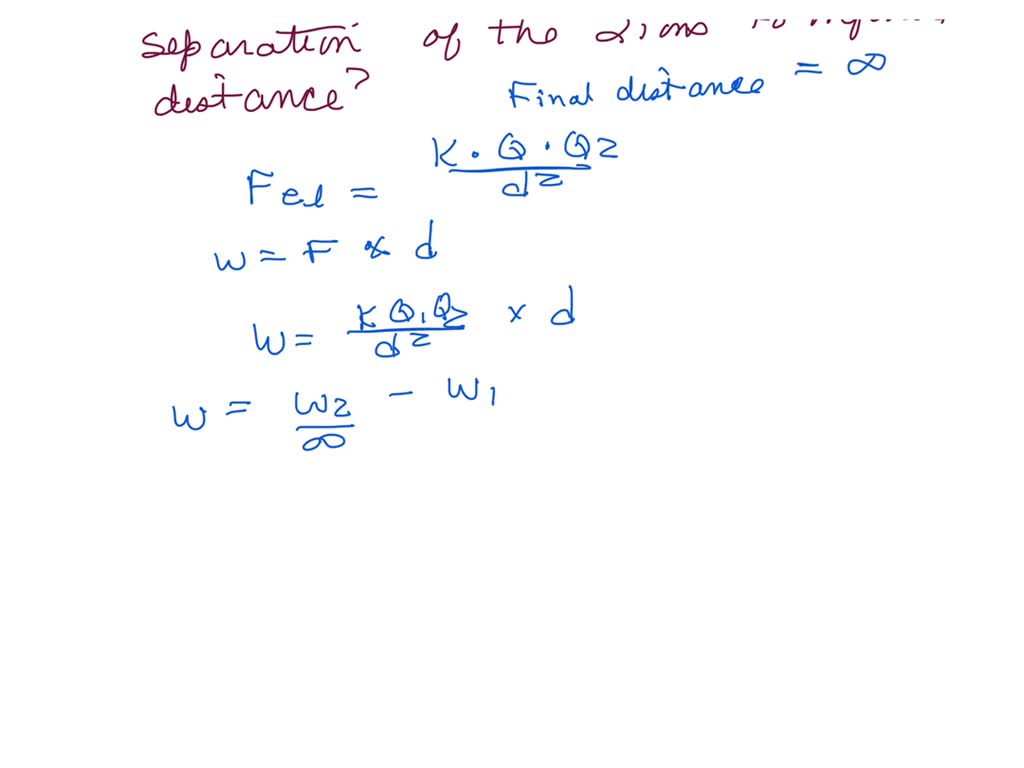 separation of the 2 ions to
distance?
Final distance = ∞
Fel = K . Q . Q2 / d2
W = F × d
W = K Q1 Q2 / d2 × d
W = W2 / ∞ - W1